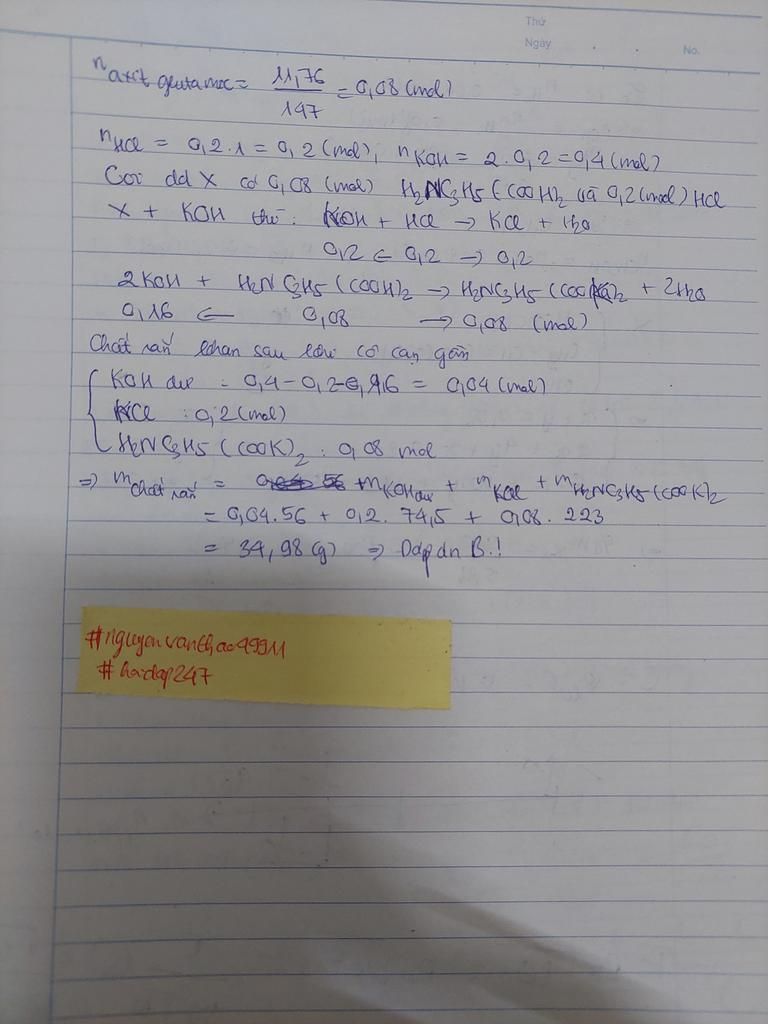 Thứ
Ngày . . No.
n axit glutamic = 11,76 / 147 = 0,08 (mol)
nHCl = 0,2.1 = 0,2 (mol), nKOH = 2.0,2 = 0,4 (mol)
Coi dd X có 0,08 (mol) H2NC3H5(COOH)2 và 0,2(mol) HCl
X + KOH thì: KOH + HCl → KCl + H2O
0,2 ← 0,2 → 0,2
2KOH + H2NC3H5(COOH)2 → H2NC3H5(COOK)2 + 2H2O
0,16 ← 0,08 → 0,08 (mol)
Chất rắn khan sau khi cô cạn gồm
KOH dư : 0,4 - 0,2 - 0,16 = 0,04 (mol)
KCl : 0,2 (mol)
H2NC3H5(COOK)2 : 0,08 mol
=> m chất rắn = mKOH dư + mKCl + mH2NC3H5(COOK)2
= 0,04.56 + 0,2.74,5 + 0,08.223
= 34,98 (g) => Đáp án B.!
#nguyenvanthao49911
#hoidap247